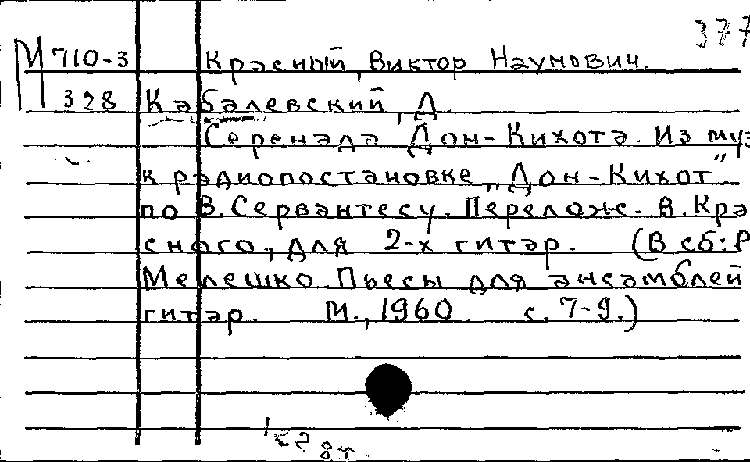 377
М 710-3 Красный, Виктор Наумович.
328 Кабалевский, Д.
Серенада Дон-Кихота. Из муз
к радиопостановке „Дон-Кихот”
по В. Сервантесу. Перелож. В. Кра
сного, для 2-х гитар. (В сб: Р
Мелешко. Пьесы для ансамблей
гитар. М., 1960. с. 7-9.)